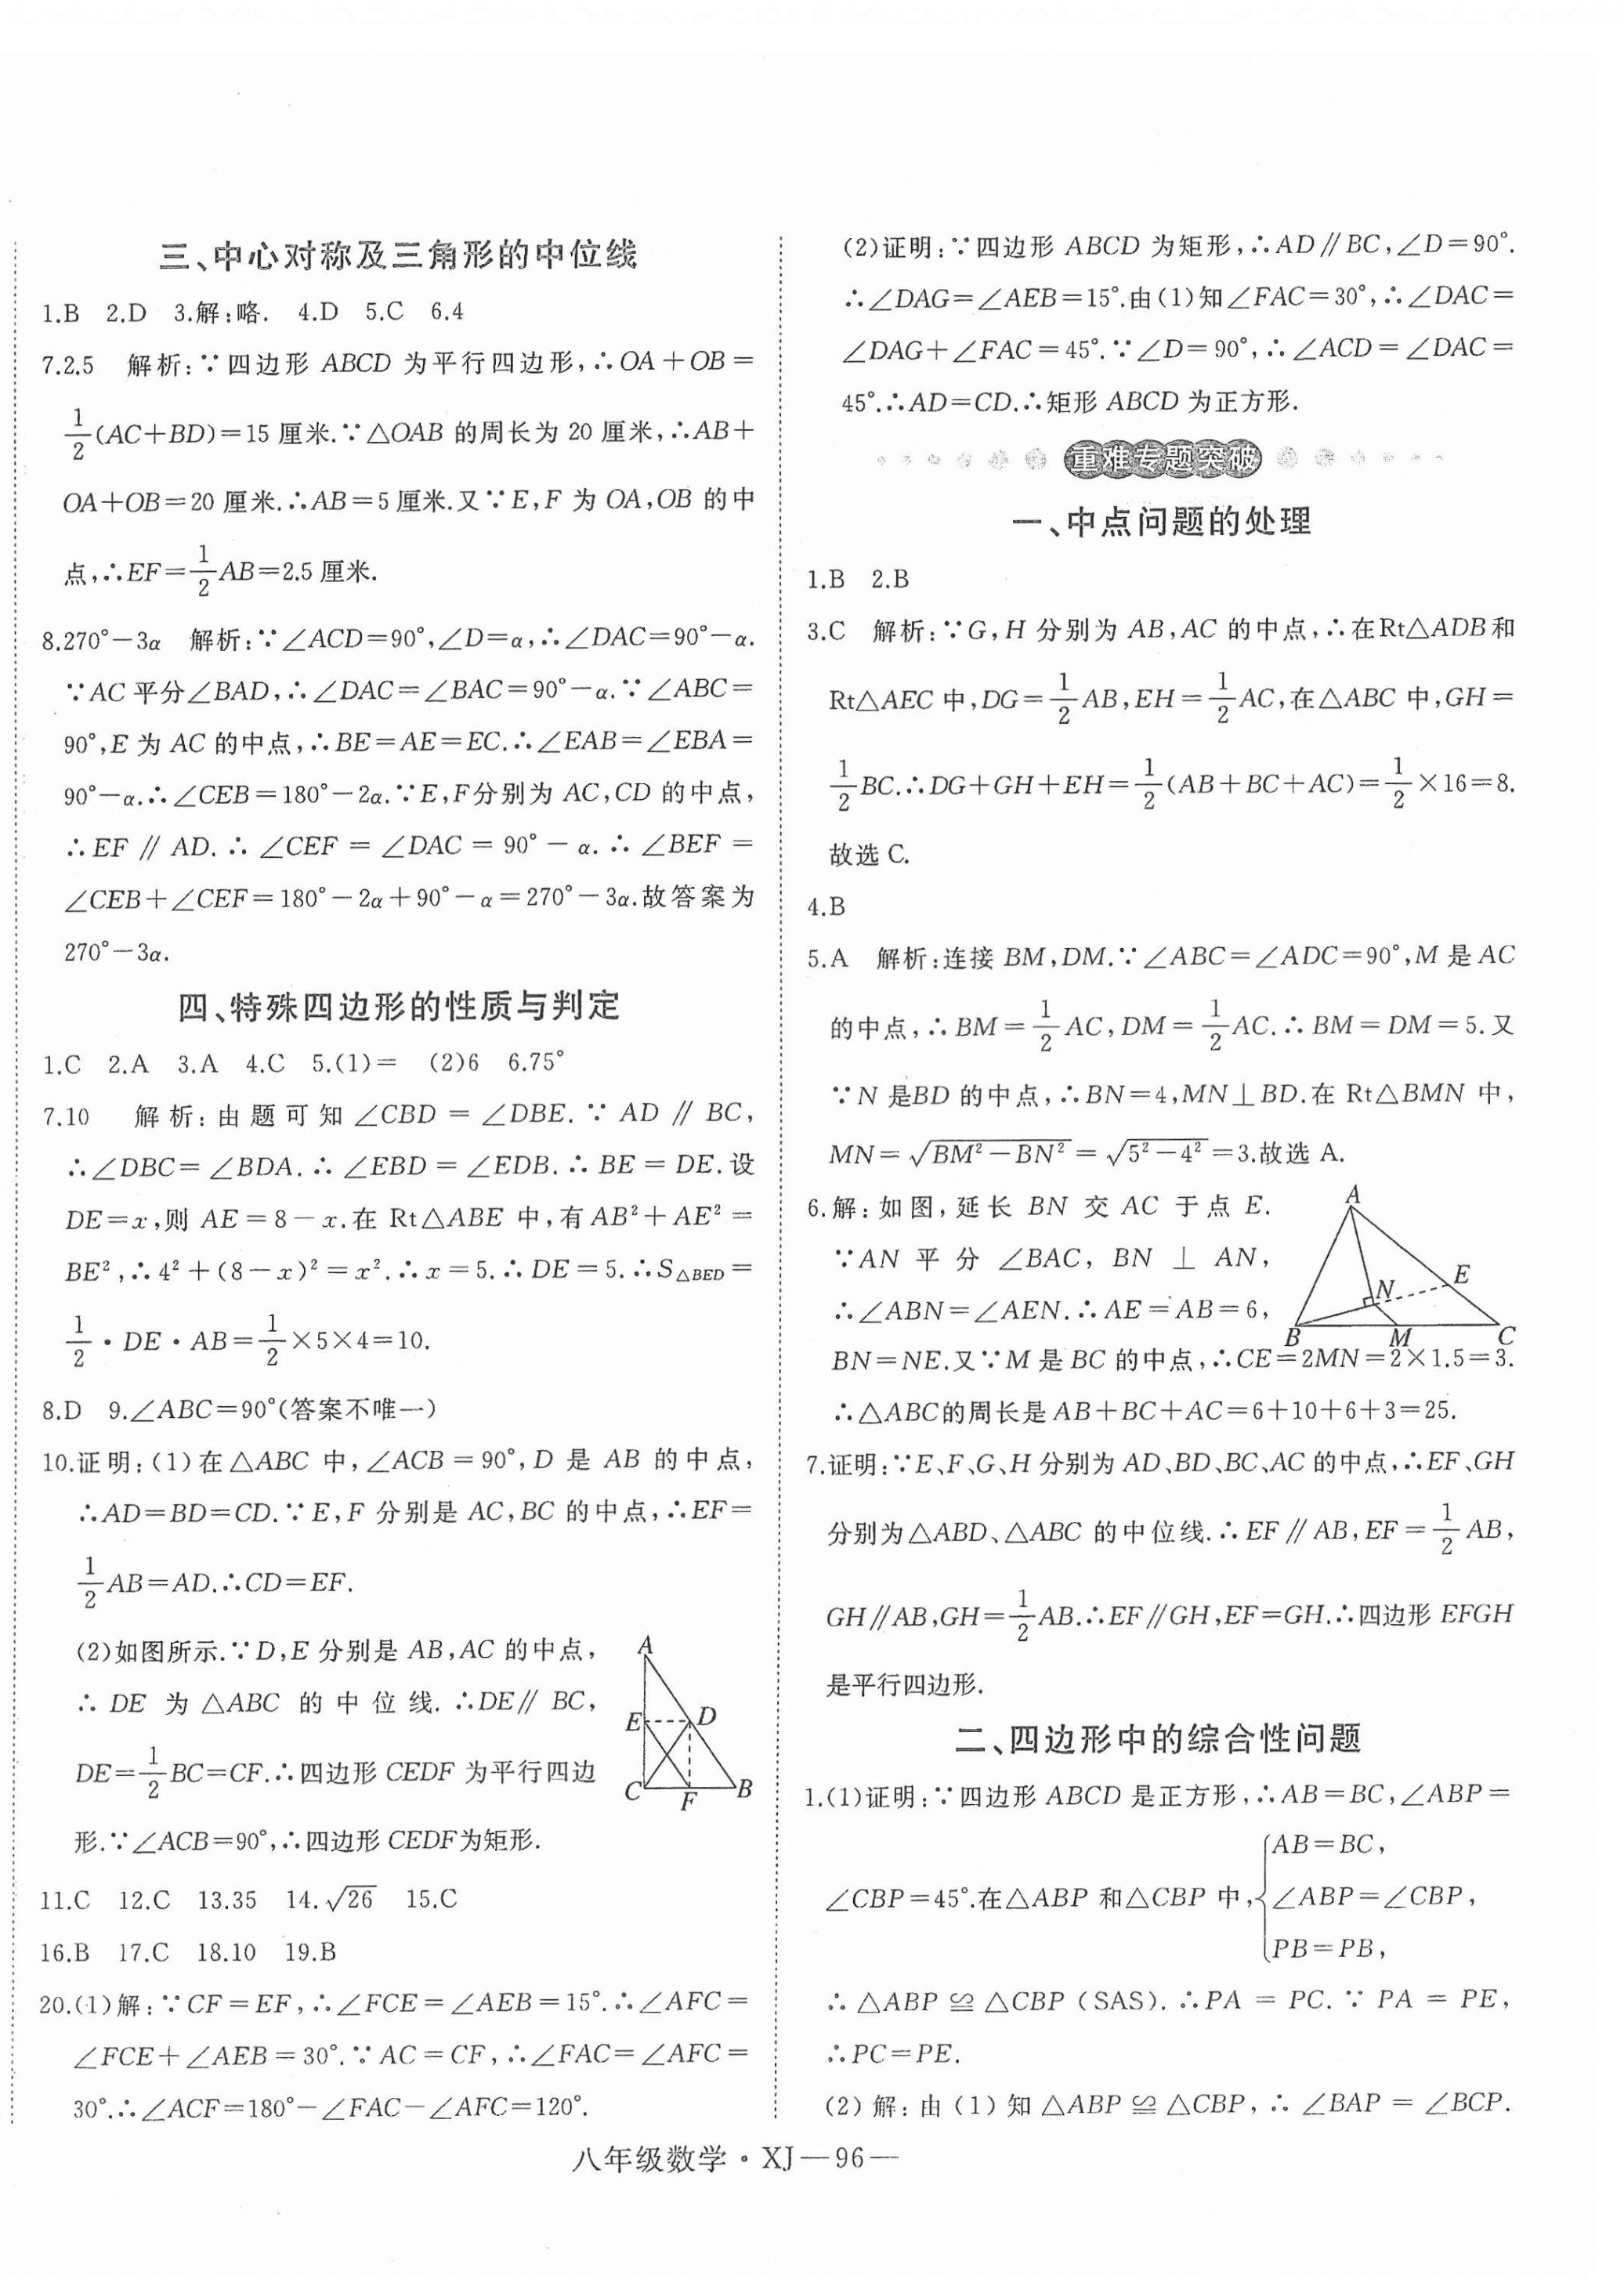 三、中心对称及三角形的中位线
1.B 2.D 3.解:略. 4.D 5.C 6.4
7.2.5 解析:∵四边形 ABCD 为平行四边形,∴OA+OB=
1/2(AC+BD)=15 厘米.∵△OAB 的周长为 20 厘米,∴AB+
OA+OB=20 厘米.∴AB=5 厘米.又∵E,F 为 OA,OB 的中
点,∴EF=1/2AB=2.5 厘米.
8.270°-3α 解析:∵∠ACD=90°,∠D=α,∴∠DAC=90°-α.
∵AC 平分∠BAD,∴∠DAC=∠BAC=90°-α.∵∠ABC=
90°,E 为 AC 的中点,∴BE=AE=EC.∴∠EAB=∠EBA=
90°-α.∴∠CEB=180°-2α.∵E,F分别为 AC,CD 的中点,
∴EF∥AD.∴∠CEF=∠DAC=90°-α.∴∠BEF=
∠CEB+∠CEF=180°-2α+90°-α=270°-3α.故答案为
270°-3α.
四、特殊四边形的性质与判定
1.C 2.A 3.A 4.C 5.(1)= (2)6 6.75°
7.10 解析:由题可知∠CBD=∠DBE.∵AD∥BC,
∴∠DBC=∠BDA.∴∠EBD=∠EDB.∴BE=DE.设
DE=x,则 AE=8-x.在 Rt△ABE 中,有 AB²+AE²=
BE²,∴4²+(8-x)²=x².∴x=5.∴DE=5.∴S△BED=
1/2·DE·AB=1/2×5×4=10.
8.D 9.∠ABC=90°(答案不唯一)
10.证明:(1)在△ABC 中,∠ACB=90°,D 是 AB 的中点,
∴AD=BD=CD.∵E,F 分别是 AC,BC 的中点,∴EF=
1/2AB=AD.∴CD=EF.
(2)如图所示.∵D,E 分别是 AB,AC 的中点,
∴DE 为△ABC 的中位线.∴DE∥BC,
DE=1/2BC=CF.∴四边形 CEDF 为平行四边
形.∵∠ACB=90°,∴四边形 CEDF为矩形.
A
E D
C F B
11.C 12.C 13.35 14.√26 15.C
16.B 17.C 18.10 19.B
20.(1)解:∵CF=EF,∴∠FCE=∠AEB=15°.∴∠AFC=
∠FCE+∠AEB=30°.∵AC=CF,∴∠FAC=∠AFC=
30°.∴∠ACF=180°-∠FAC-∠AFC=120°.
(2)证明:∵四边形 ABCD 为矩形,∴AD∥BC,∠D=90°.
∴∠DAG=∠AEB=15°.由(1)知∠FAC=30°,∴∠DAC=
∠DAG+∠FAC=45°.∵∠D=90°,∴∠ACD=∠DAC=
45°.∴AD=CD.∴矩形 ABCD 为正方形.
重难专题突破
一、中点问题的处理
1.B 2.B
3.C 解析:∵G,H 分别为 AB,AC 的中点,∴在Rt△ADB和
Rt△AEC 中,DG=1/2AB,EH=1/2AC,在△ABC 中,GH=
1/2BC.∴DG+GH+EH=1/2(AB+BC+AC)=1/2×16=8.
故选 C.
4.B
5.A 解析:连接 BM,DM.∵∠ABC=∠ADC=90°,M 是 AC
的中点,∴BM=1/2AC,DM=1/2AC.∴BM=DM=5.又
∵N 是BD 的中点,∴BN=4,MN⊥BD.在 Rt△BMN 中,
MN=√(BM²-BN²)=√(5²-4²)=3.故选 A.
6.解:如图,延长 BN 交 AC 于点 E.
∵AN 平分∠BAC,BN⊥AN,
∴∠ABN=∠AEN.∴AE=AB=6,
A
N E
B M C
BN=NE.又∵M 是 BC 的中点,∴CE=2MN=2×1.5=3.
∴△ABC的周长是 AB+BC+AC=6+10+6+3=25.
7.证明:∵E、F、G、H 分别为 AD、BD、BC、AC 的中点,∴EF、GH
分别为△ABD、△ABC 的中位线.∴EF∥AB,EF=1/2AB,
GH∥AB,GH=1/2AB.∴EF∥GH,EF=GH.∴四边形 EFGH
是平行四边形.
二、四边形中的综合性问题
1.(1)证明:∵四边形 ABCD 是正方形,∴AB=BC,∠ABP=
∠CBP=45°.在△ABP 和△CBP 中,{AB=BC,
∠ABP=∠CBP,
PB=PB,
∴△ABP≌△CBP(SAS).∴PA=PC.∵PA=PE,
∴PC=PE.
(2)解:由(1)知△ABP≌△CBP,∴∠BAP=∠BCP.
八年级数学·XJ—96—